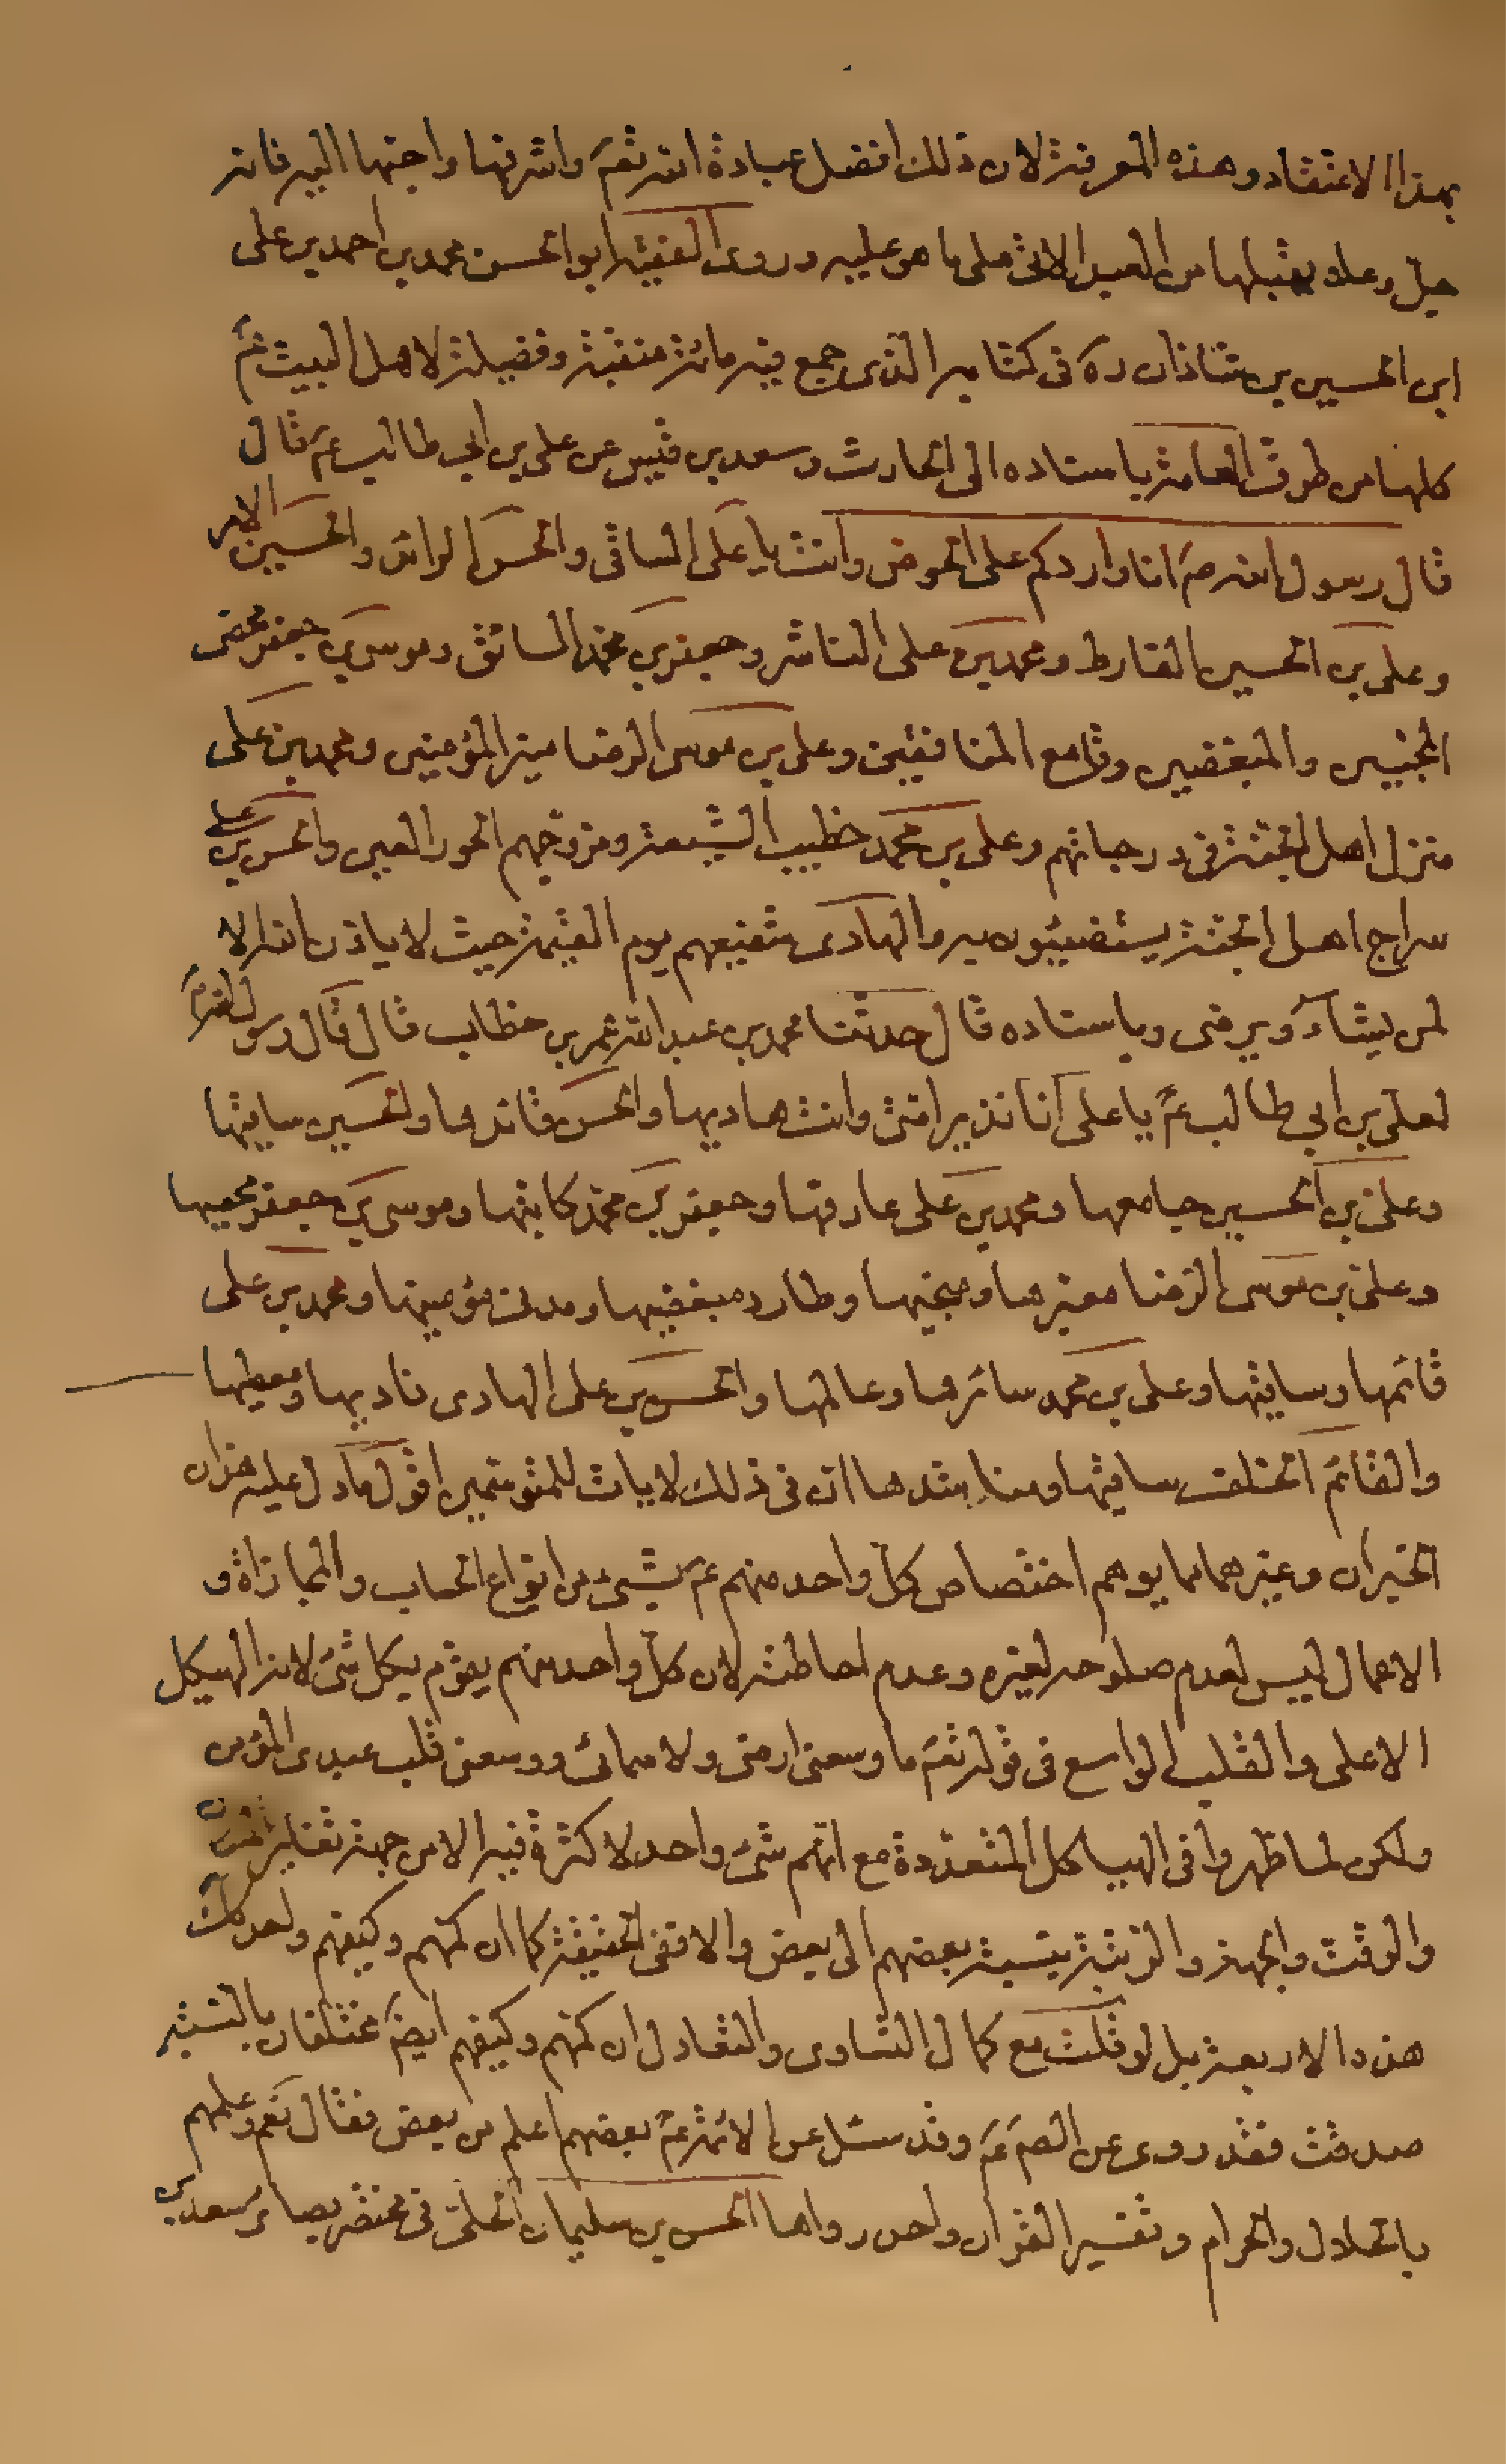 بهذا الاعتقاد وهذه المعرفة لان ذلك افضل عبادة الله تعم واشرفها واحبها اليه فانه
جل وعلا يقبلها من العبد الاتى على ما هو عليه وروى الفقيه ابو الحسن محمد بن احمد بن على
ابن الحسين بن شاذان ره فى كتابه الذى جمع فيه مائة منقبة وفضيلة لاهل البيت عم
كلها من طرق العامة باسناده الى الحارث وسعد بن قيس عن على بن ابى طالب عم قال
قال رسول الله ص انا واردكم على الحوض وانت يا على الساقى والحسن الرائد والحسين الامر
وعلى بن الحسين الفارط ومحمد بن على الناشر وجعفر بن محمد السائق وموسى بن جعفر محصى
المحبين والمبغضين وقامع المنافقين وعلى بن موسى الرضا مير المؤمنين ومحمد بن على
منزل اهل الجنة فى درجاتهم وعلى بن محمد خطيب الشيعة ومزوجهم الحور العين والحسن بن على
سراج اهل الجنة يستضيئون به والهادى شفيعهم يوم القيمة حيث لا ياذن الله الا
لمن يشاء ويرضى وباسناده قال حدثنا محمد بن عبد الله عمر بن خطاب قال قال رسول الله ص
لعلى بن ابى طالب عم يا على انا نذير امتى وانت هاديها والحسن قائدها والحسين سايقها
وعلى بن الحسين جامعها ومحمد بن على عارفها وجعفر بن محمد كاتبها وموسى بن جعفر محصيها
وعلى بن موسى الرضا معبرها ومنجيها وطارد مبغضيها ومدنى مؤمنيها ومحمد بن على
قائمها وسايقها وعلى بن محمد سائرها وعالمها والحسن بن على الهادى ناديها ومعطيها
والقائم الخلف ساقيها ومناشدها ان فى ذلك لايات للمتوسمين اقول ما دل عليه هذان
الخبران وغيرهما مما يوهم اختصاص كل واحد منهم عم بشىء من انواع الحساب والمجازاة و
الاعمال ليس لعدم صلوحه لغيره وعدم احاطته لان كل واحد منهم يقوم بكل شىء لانه الهيكل
الاعلى والقلب الواسع فى قوله تعم ما وسعنى ارضى ولا سمائى ووسعنى قلب عبدى المؤمن
ولكن لما ظهروا فى الهياكل المتعددة مع انهم شىء واحد لا كثرة فيه الا من جهة تغاير
والوقت والجهة والرتبة بنسبة بعضهم الى بعض والا ففى الحقيقة كما ان كمهم وكيفهم واحد كك
هذه الاربعة بل لو قلت مع كمال التساوى والتعادل ان كمهم وكيفهم ايض مختلفان بالنسبة
صدقت فقد روى عن الصم عم وقد سئل عن الائمة عم بعضهم اعلم من بعض فقال نعم وعلمهم
بالحلال والحرام وتفسير القران واحد رواها الحسن بن سليمان الحلى فى مختصر بصائر سعد بن